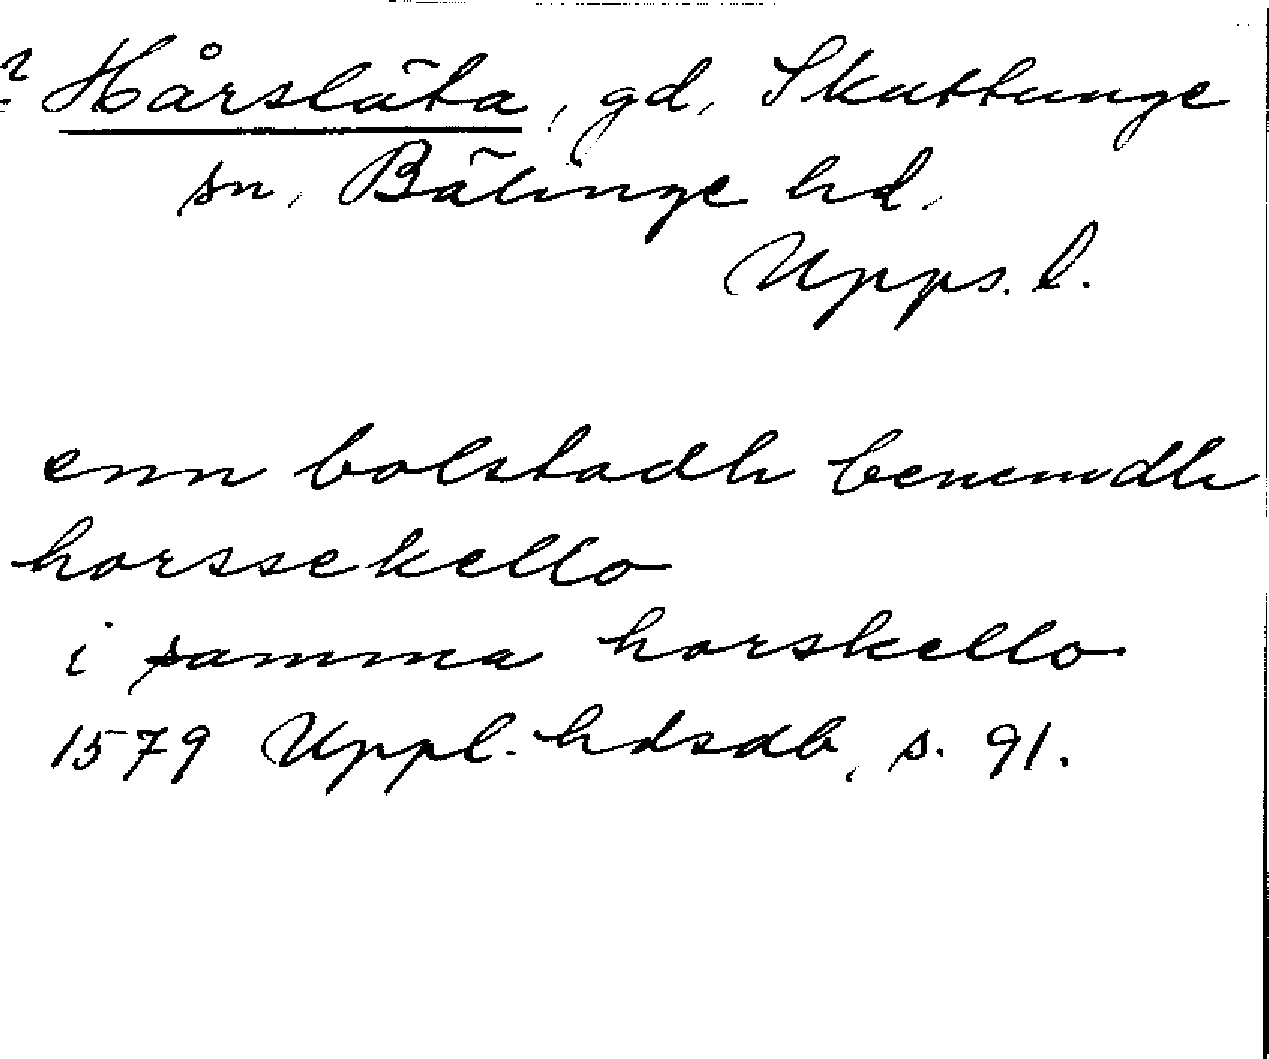 ? Hårsläta, gd, Skuttunge
sn, Bälinge hd.
Upps. l.
enn bolstadh benemdh
horssekello
i samma horskello
1579 Uppl. hdsdb, s. 91.